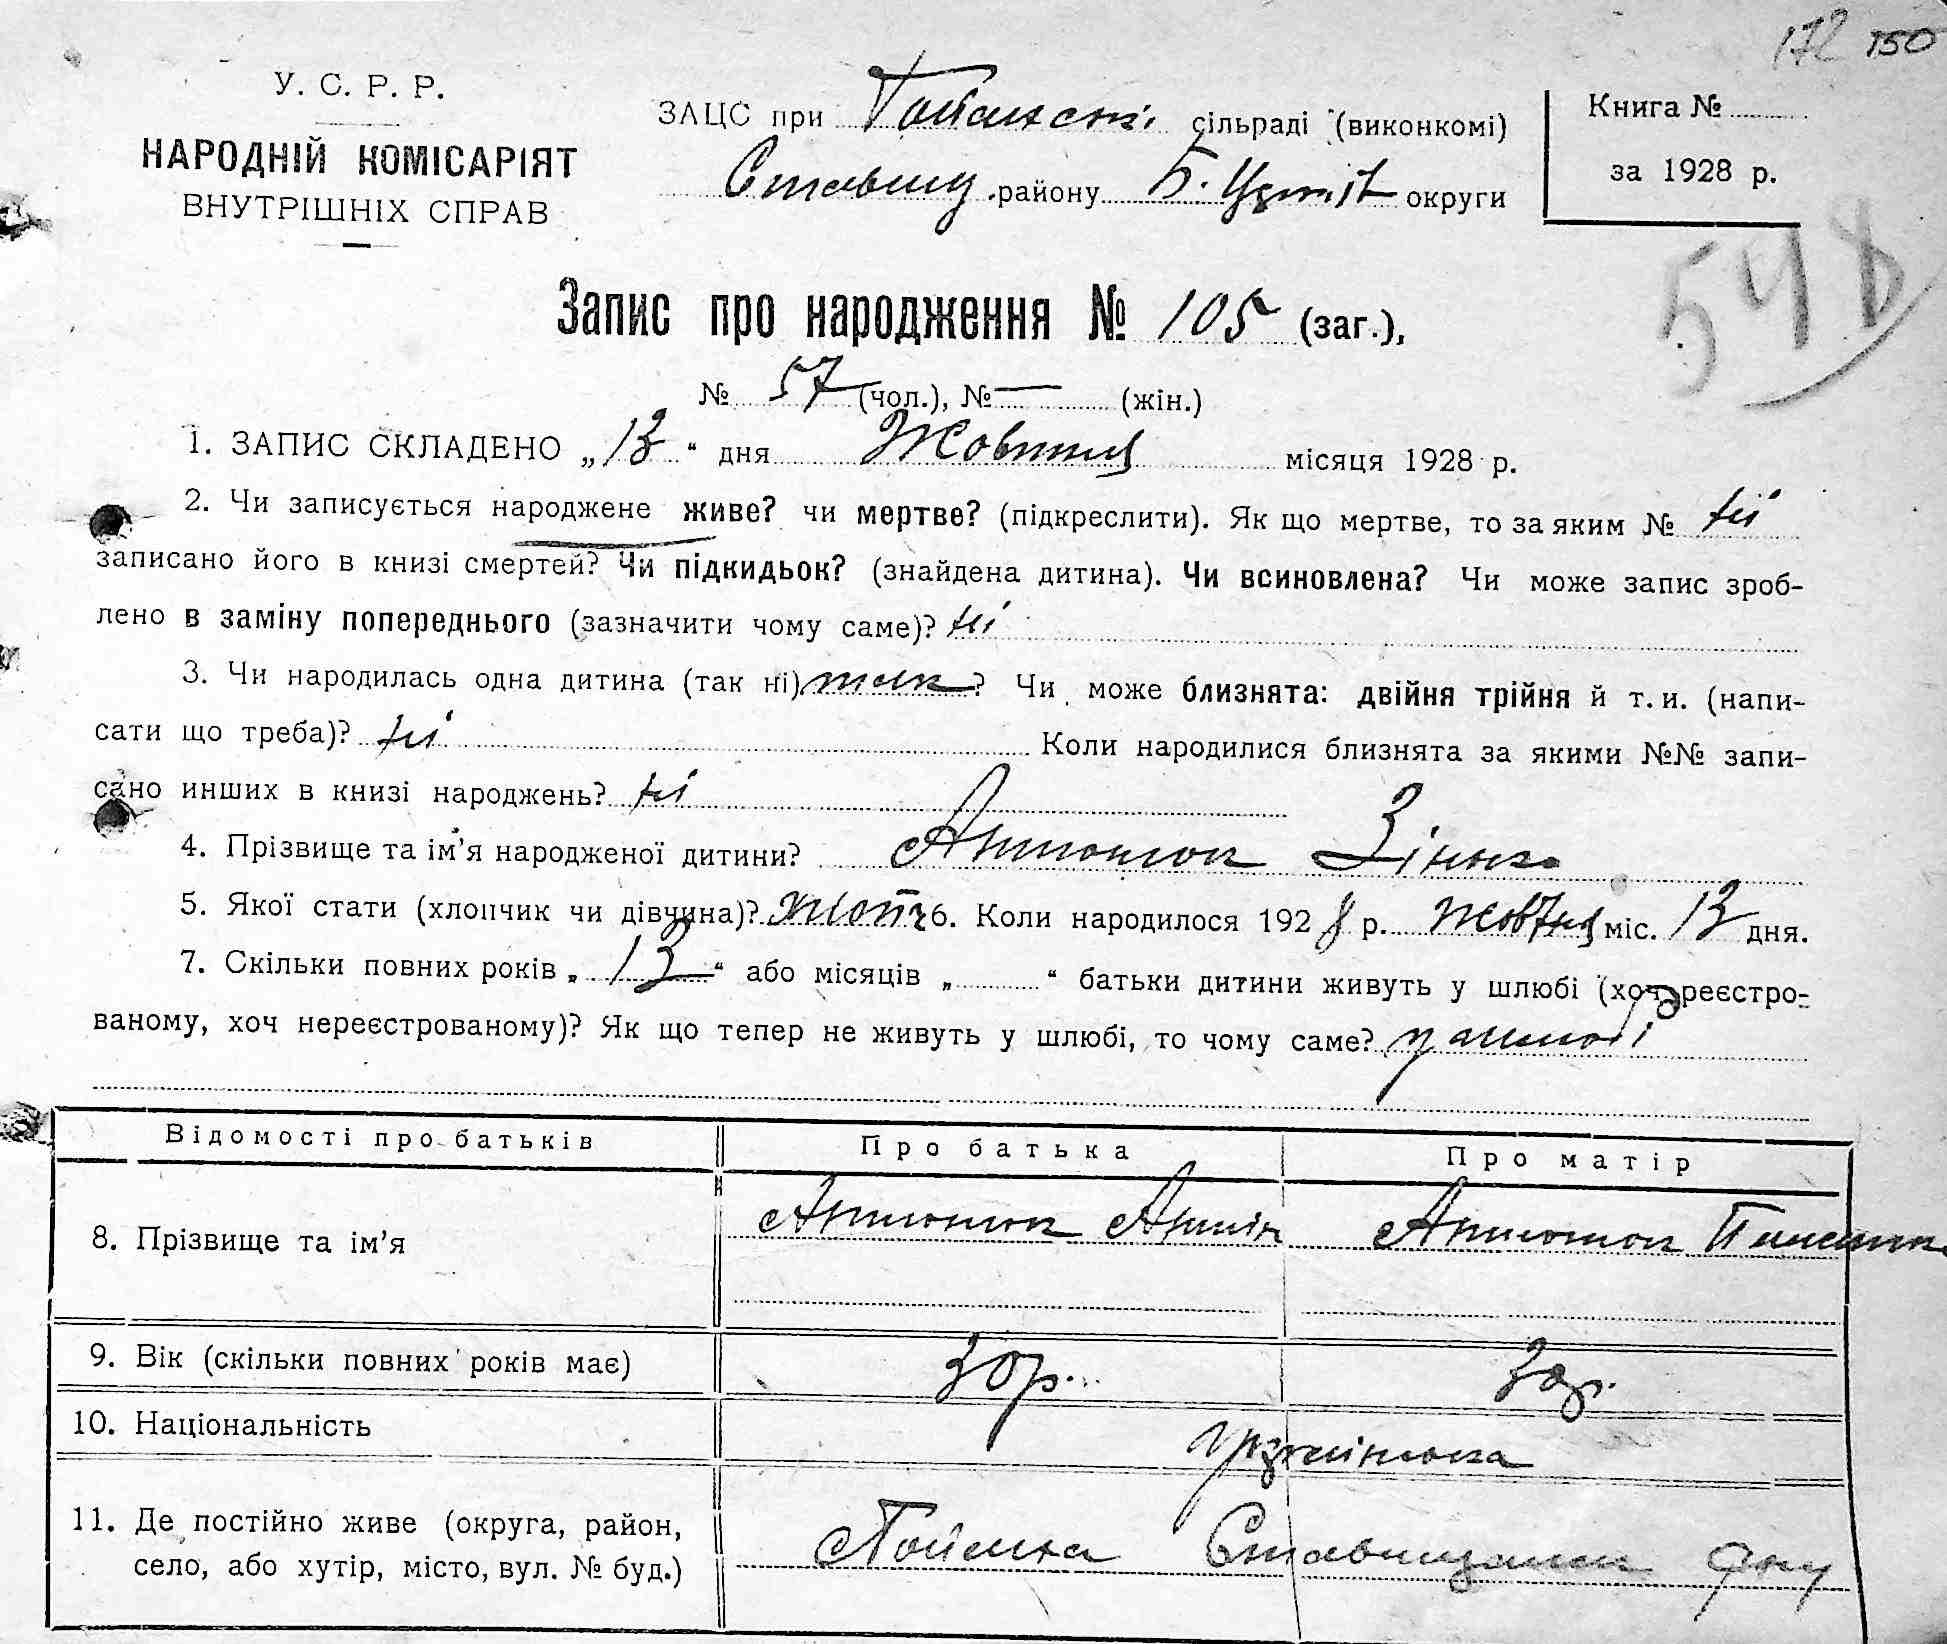 172 150
У. С. Р. Р.
НАРОДНІЙ КОМІСАРІЯТ
ВНУТРІШНІХ СПРАВ
ЗАЦС при Гойанські сільраді (виконкомі)
Ставищ. району Б. Церків округи
Книга №
за 1928 р.
548
Запис про народження № 105 (заг.),
№ 57 (чол.), № — (жін.)
1. ЗАПИС СКЛАДЕНО „13“ дня Жовтня місяця 1928 р.
2. Чи записується народжене живе? чи мертве? (підкреслити). Як що мертве, то за яким № ні
записано його в книзі смертей? Чи підкидьок? (знайдена дитина). Чи всиновлена? Чи може запис зроб-
лено в заміну попереднього (зазначити чому саме)? ні
3. Чи народилась одна дитина (так ні) так? Чи може близнята: двійня трійня й т. и. (напи-
сати що треба)? ні Коли народилися близнята за якими №№ запи-
сано инших в книзі народжень? ні
4. Прізвище та ім’я народженої дитини? Антонюк Зінько
5. Якої стати (хлопчик чи дівчина)? хлопч 6. Коли народилося 1928 р. Жовтня міс. 13 дня.
7. Скільки повних років „13“ або місяців „ “ батьки дитини живуть у шлюбі (хоч реєстро-
ваному, хоч нереєстрованому)? Як що тепер не живуть у шлюбі, то чому саме? у шлюбі
Відомості про батьків Про батька Про матір
8. Прізвище та ім’я Антонюк Антін Антонюк
9. Вік (скільки повних років має) 30 р. 30 р.
10. Національність українська
11. Де постійно живе (округа, район,
село, або хутір, місто, вул. № буд.) Ставищанськ р-ну